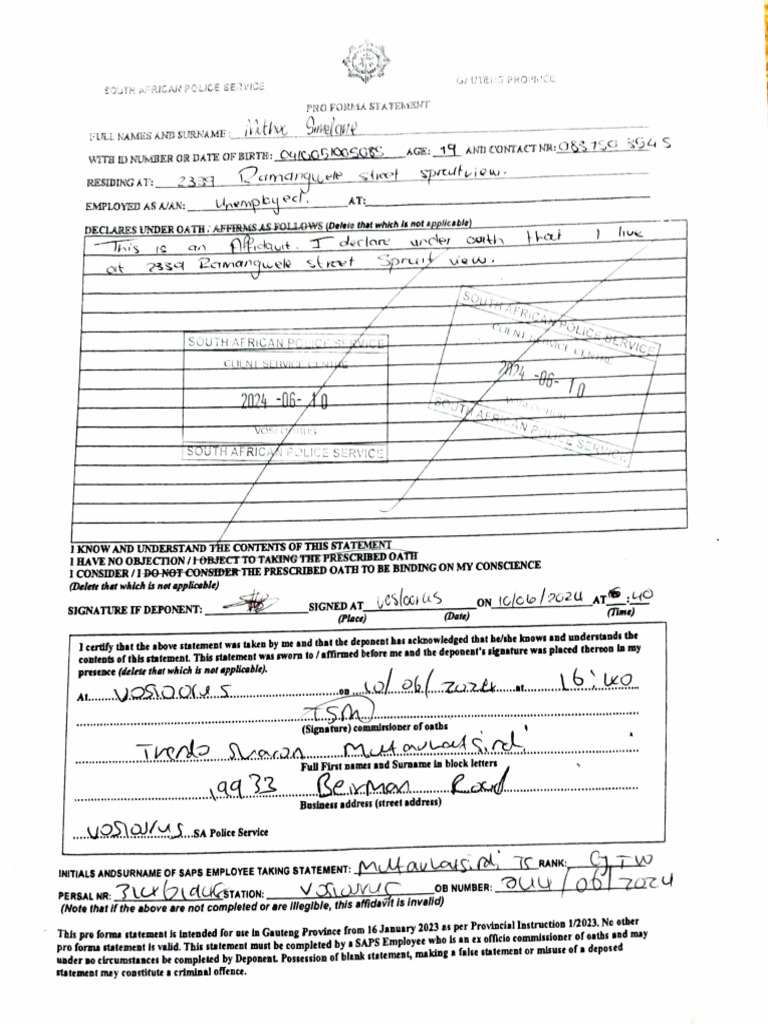 SOUTH AFRICAN POLICE SERVICE
GAUTENG PROVINCE
PRO FORMA STATEMENT
FULL NAMES AND SURNAME:
WITH ID NUMBER OR DATE OF BIRTH: 0410051005085 AGE: 19 AND CONTACT NR: 083 750 3545
RESIDING AT: 2339 Ramangwele street spruitview.
EMPLOYED AS A/AN: Unemployed. AT:
DECLARES UNDER OATH / AFFIRMS AS FOLLOWS (Delete that which is not applicable)
This is an Affidavit. I declare under oath that I live
at 2339 Ramangwele street Spruit view.
SOUTH AFRICAN POLICE SERVICE
CLIENT SERVICE CENTRE
2024 -06- 10
VOSLOORUS
SOUTH AFRICAN POLICE SERVICE
SOUTH AFRICAN POLICE SERVICE
CLIENT SERVICE CENTRE
2024 -06- 10
VOSLOORUS
SOUTH AFRICAN POLICE SERVICE
I KNOW AND UNDERSTAND THE CONTENTS OF THIS STATEMENT
I HAVE NO OBJECTION / I OBJECT TO TAKING THE PRESCRIBED OATH
I CONSIDER / I DO NOT CONSIDER THE PRESCRIBED OATH TO BE BINDING ON MY CONSCIENCE
(Delete that which is not applicable)
SIGNATURE IF DEPONENT: SIGNED AT Vosloorus ON 10/06/2024 AT :40
(Place) (Date) (Time)
I certify that the above statement was taken by me and that the deponent has acknowledged that he/she knows and understands the
contents of this statement. This statement was sworn to / affirmed before me and the deponent's signature was placed thereon in my
presence (delete that which is not applicable).
At Vosloorus on 10/06/2024 at 16:40
TSM
(Signature) commissioner of oaths
Sharon
Full First names and Surname in block letters
19933 Bierman Road
Business address (street address)
Vosloorus SA Police Service
INITIALS ANDSURNAME OF SAPS EMPLOYEE TAKING STATEMENT: TS RANK:
PERSAL NR: STATION: Vosloorus OB NUMBER: /06/2024
(Note that if the above are not completed or are illegible, this affidavit is invalid)
This pro forma statement is intended for use in Gauteng Province from 16 January 2023 as per Provincial Instruction 1/2023. No other
pro forma statement is valid. This statement must be completed by a SAPS Employee who is an ex officio commissioner of oaths and may
under no circumstances be completed by Deponent. Possession of blank statement, making a false statement or misuse of a deposed
statement may constitute a criminal offence.